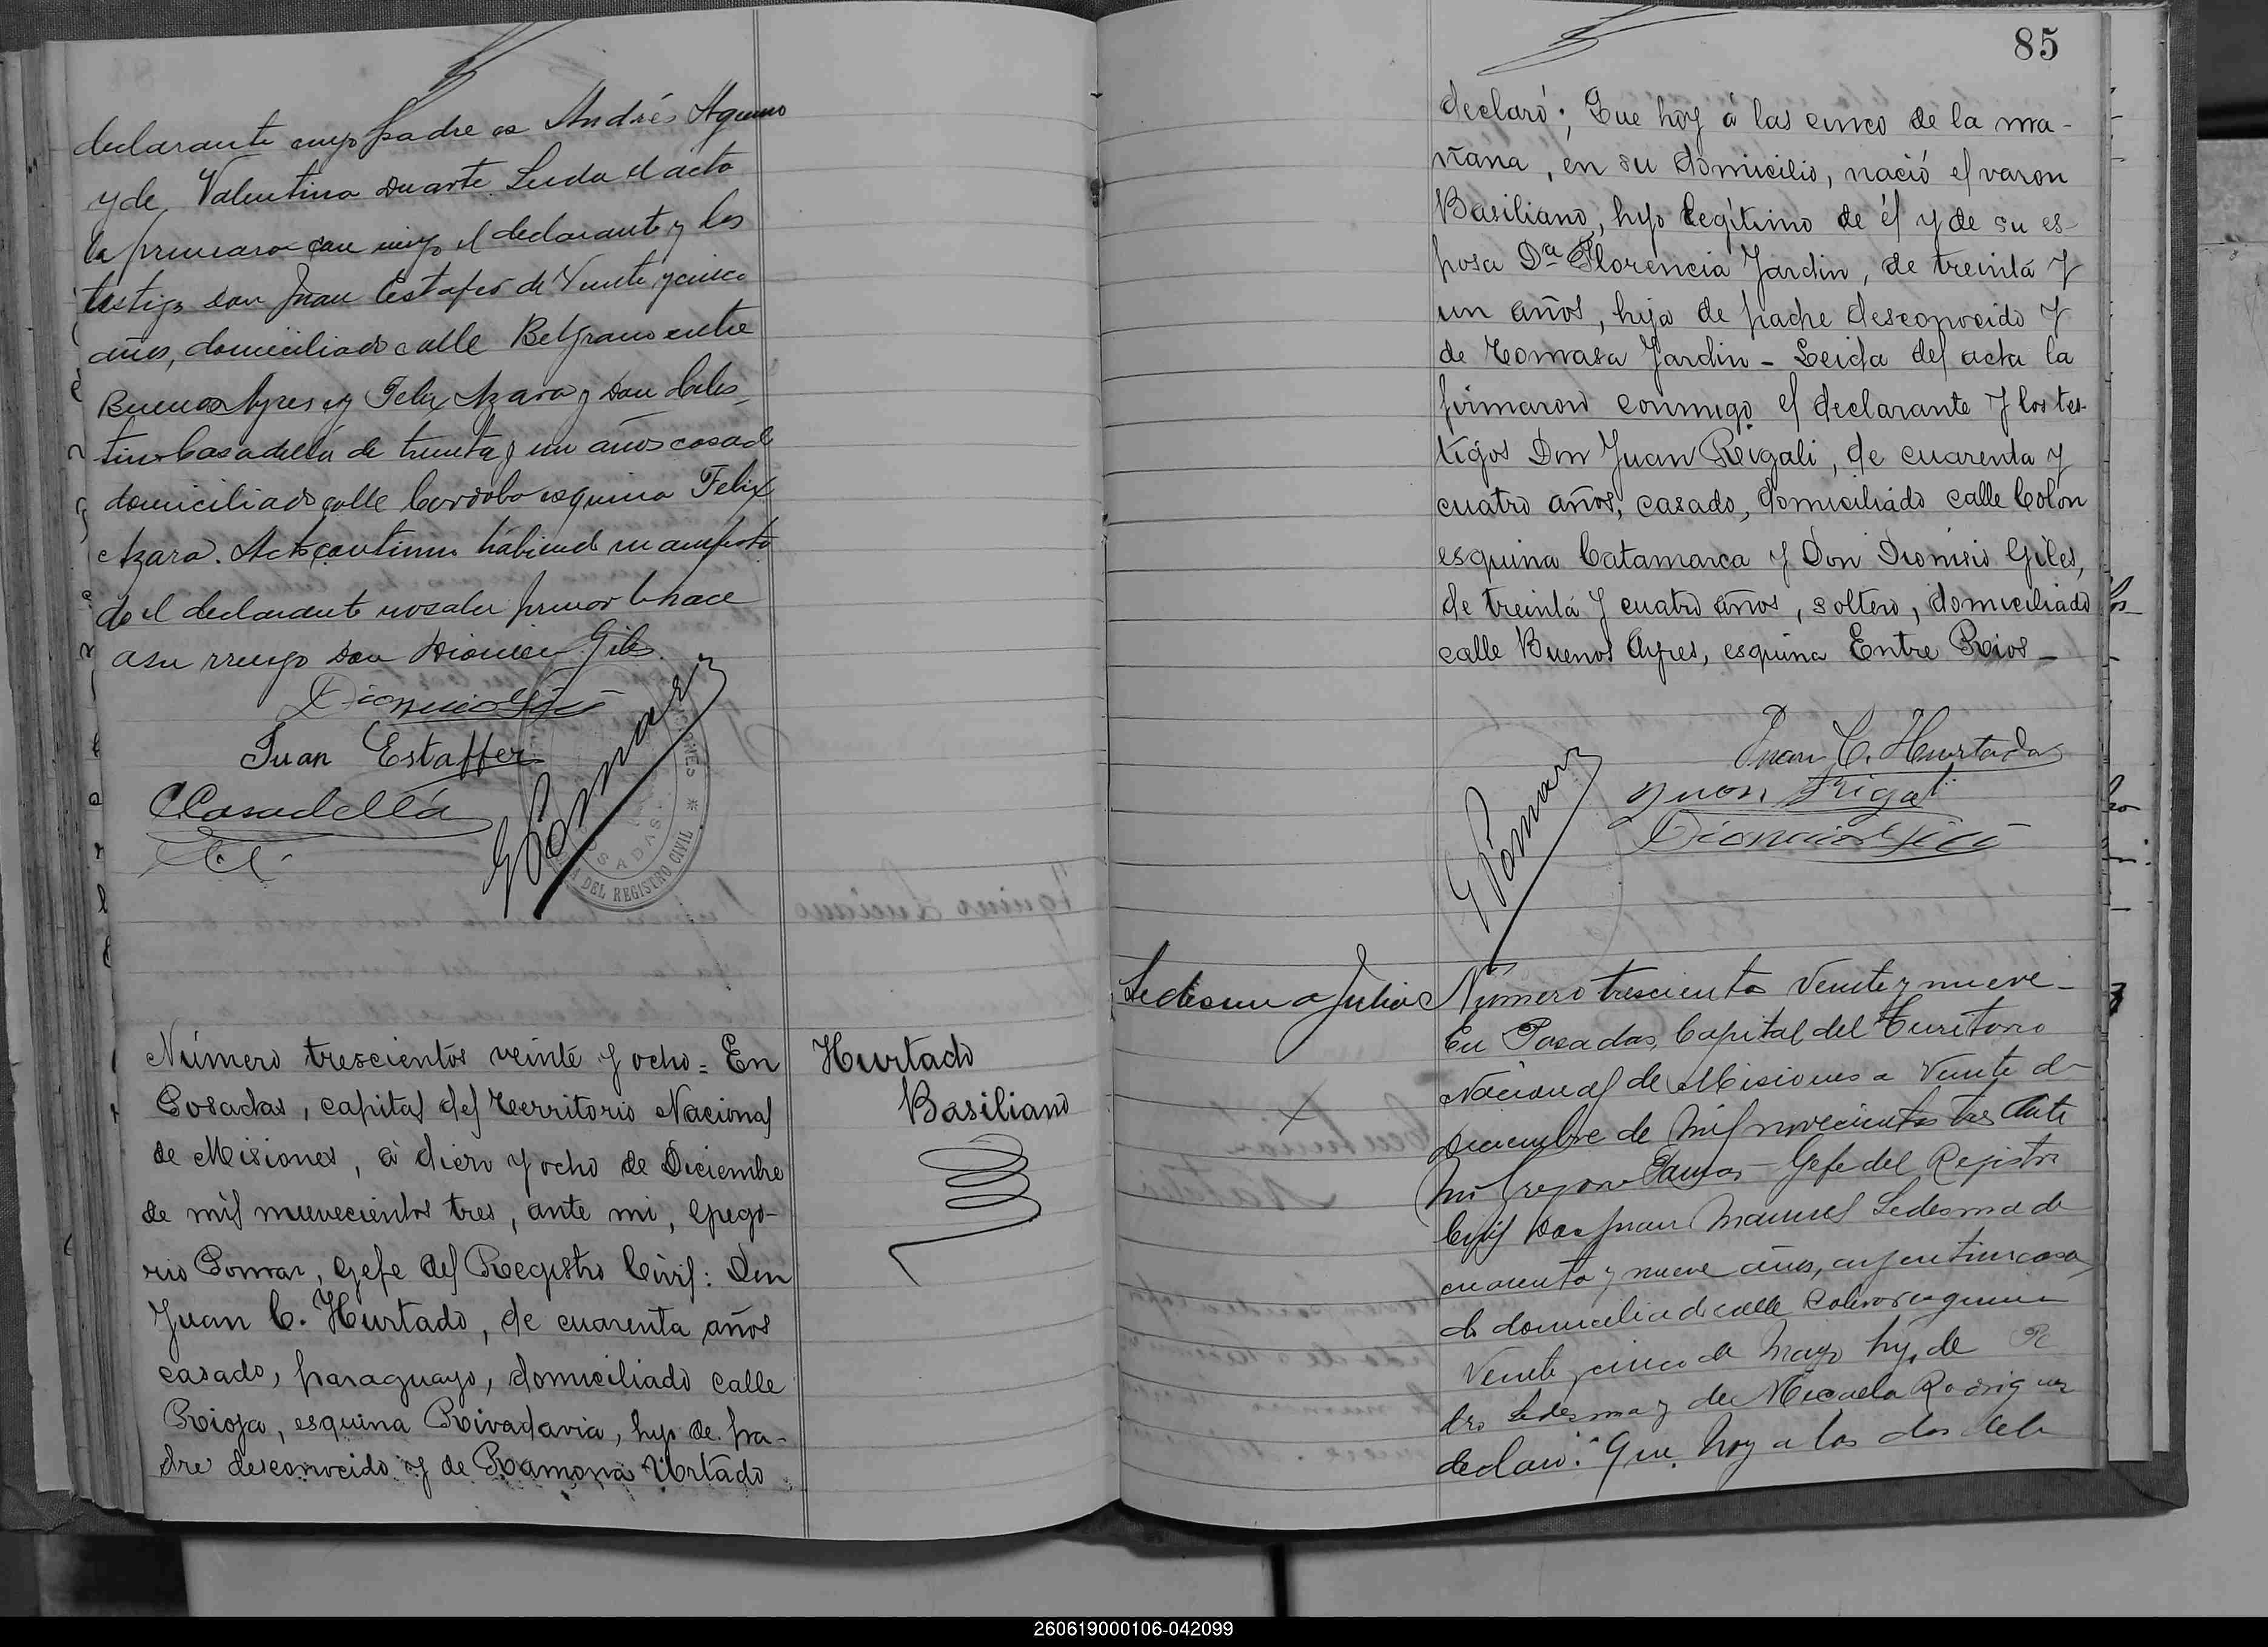 declarante cuyo padre es Andrés Aquino
y de Valentina Duarte. Leida el acta
la firmaron conmigo el declarante y los
testigos don Juan Estafer de Veinte y cinco
años, domiciliado calle Belgrano entre
Buenos Ayres y Felix Azara y Don Celes-
tino Casadellá de treinta y un años casado
domiciliado calle Cordoba esquina Felix
Azara. Acto continuo habiendo manifesta
do el declarante no saber firmar lo hace
a su ruego Don Dionicio Giles.
Dionicio Giles
Juan Estaffer
CCasadellá
G Pomar
DEL REGISTRO CIVIL
POSADAS
Número trescientos veinte y ocho = En
Posadas, capital del Territorio Nacional
de Misiones, á diez y ocho de Diciembre
de mil nuevecientos tres, ante mi, Grego-
rio Pomar, Gefe del Registro Civil: Don
Juan C. Hurtado, de cuarenta años
casado, paraguayo, domiciliado calle
Rioja, esquina Rivadavia, hijo de pa-
dre desconocido y de Ramona Urtado
Hurtado
Basiliano
85
declaró; Que hoy á las cinco de la ma-
ñana, en su domicilio, nació el varon
Basiliano, hijo legítimo de él y de su es-
posa Da Florencia Jardin, de treinta y
un años, hija de padre desconocido y
de Tomasa Jardin - Leida del acta la
firmaron conmigo el declarante y los tes-
tigos Don Juan Rigali, de cuarenta y
cuatro años, casado, domiciliado calle Colon
esquina Catamarca y Don Dionisio Giles,
de treinta y cuatro años, soltero, domiciliado
calle Buenos Ayres, esquina Entre Rios -
Juan C. Hurtado
Juan Rigali
Dionicio Giles
G Pomar
Ledesma Julio
Número trescientos Veinte y nueve -
En Posadas, Capital del Territorio
Nacional de Misiones a Veinte de
Diciembre de mil novecientos tres Ante
mi Gregorio Pomar Gefe del Registro
Civil Don Juan Manuel Ledesma de
cuarenta y nueve años, argentino casa
do domiciliado calle Bolivar esquina
Veinte y cinco de Mayo hijo de
dro Ledesma y de Micaela Rodriguez
declaró: Que hoy a las dos de la
260619000106-042099